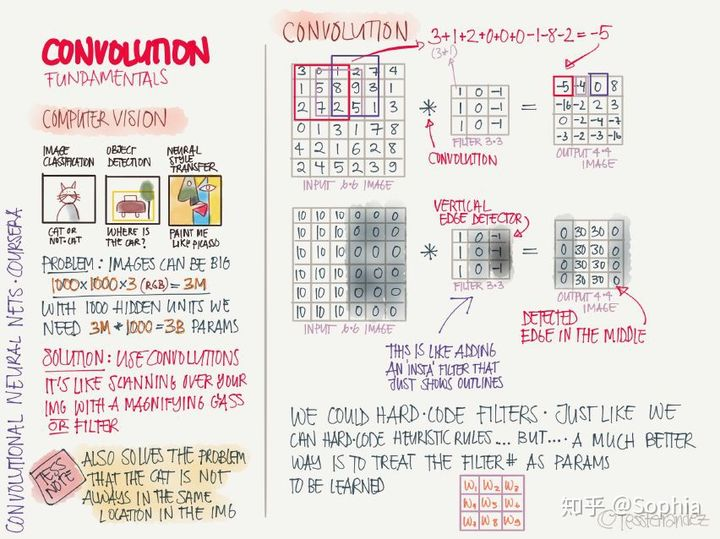 CONVOLUTIONAL NEURAL NETS · COURSERA
CONVOLUTION
FUNDAMENTALS
COMPUTER VISION
IMAGE CLASSIFICATION
OBJECT DETECTION
NEURAL STYLE TRANSFER
CAT OR NOT-CAT
WHERE IS THE CAR?
PAINT ME LIKE PICASSO
PROBLEM: IMAGES CAN BE BIG
1000×1000×3 (RGB) = 3M
WITH 1000 HIDDEN UNITS WE
NEED 3M*1000=3B PARAMS
SOLUTION: USE CONVOLUTIONS
IT'S LIKE SCANNING OVER YOUR
IMG WITH A MAGNIFYING GASS
OR FILTER
TESS NOTE
ALSO SOLVES THE PROBLEM
THAT THE CAT IS NOT
ALWAYS IN THE SAME
LOCATION IN THE IMG
CONVOLUTION
3+1+2+0+0+0-1-8-2=-5
(3*1)
3 0 1 2 7 4
1 5 8 9 3 1
2 7 2 5 1 3
0 1 3 1 7 8
4 2 1 6 2 8
2 4 5 2 3 9
INPUT 6·6 IMAGE
*
CONVOLUTION
1 0 -1
1 0 -1
1 0 -1
FILTER 3·3
=
-5 -4 0 8
-16 -2 2 3
0 -2 -4 -7
-3 -2 -3 -16
OUTPUT 4·4
IMAGE
10 10 10 0 0 0
10 10 10 0 0 0
10 10 10 0 0 0
10 10 10 0 0 0
10 10 10 0 0 0
10 10 10 0 0 0
INPUT 6·6 IMAGE
*
VERTICAL
EDGE DETECTOR
1 0 -1
1 0 -1
1 0 -1
FILTER 3·3
=
0 30 30 0
0 30 30 0
0 30 30 0
0 30 30 0
OUTPUT 4·4
IMAGE
DETECTED
EDGE IN THE MIDDLE
THIS IS LIKE ADDING
AN 'INSTA' FILTER THAT
JUST SHOWS OUTLINES
WE COULD HARD·CODE FILTERS · JUST LIKE WE
CAN HARD·CODE HEURISTIC RULES.... BUT.... A MUCH BETTER
WAY IS TO TREAT THE FILTER# AS PARAMS
TO BE LEARNED
W1 W2 W3
W4 W5 W6
W7 W8 W9
知乎 @Sophia
@TessFerrandez